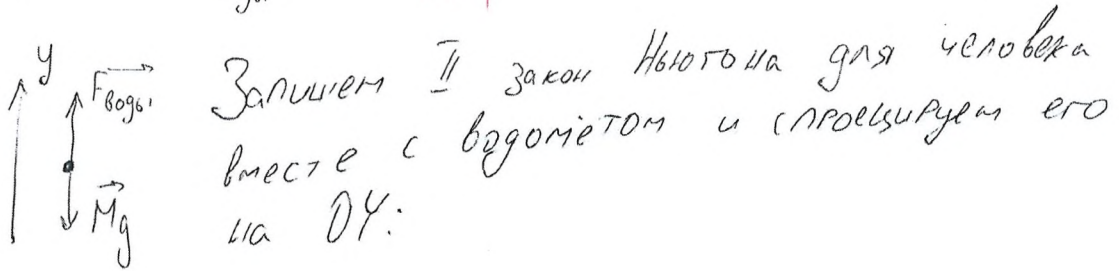 y
F воды
Запишем II закон Ньютона для человека
вместе с водомётом и спроецируем его
Mg
на OY: